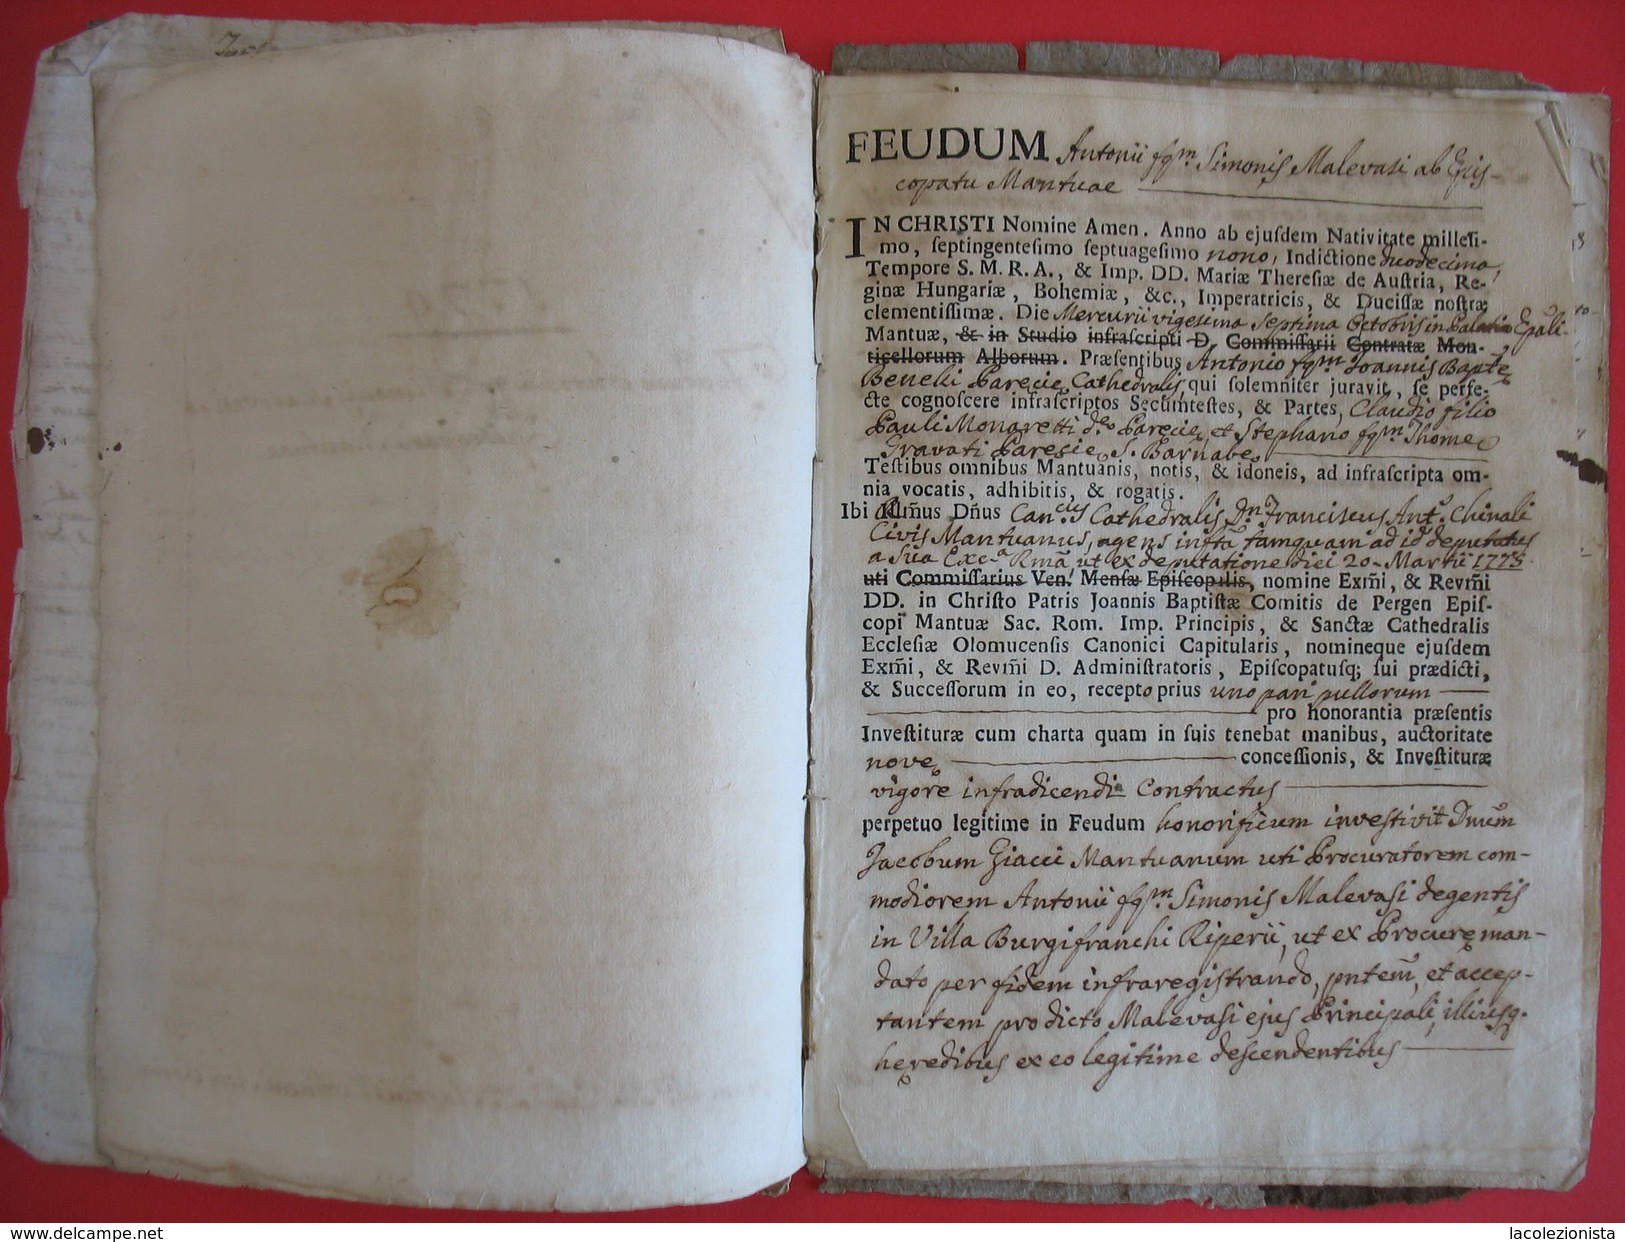 FEUDUM Antonii fqm. Simonis Malevasi ab Epis-
copatu Mantuae
IN CHRISTI Nomine Amen. Anno ab ejuſdem Nativitate milleſi-
mo, ſeptingenteſimo ſeptuageſimo nono, Indictione duodecima,
Tempore S. M. R. A., & Imp. DD. Mariæ Thereſiæ de Auſtria, Re-
ginæ Hungariæ, Bohemiæ, &c., Imperatricis, & Duciſſæ noſtræ
clementiſſimæ. Die Mercurii vigesima septima Octobris in Palatio Epāli
Mantuæ, & in Studio infraſcripti D. Commiſſarii Contratæ Mon-
ticellorum Alborum. Præſentibus Antonio fqm Joannis Baptę
Parecię Cathedralis, qui ſolemniter juravit, ſe perfe-
cte cognoſcere infraſcriptos Secumteſtes, & Partes, Claudio filio
Pauli Monaretti Parecię, et Stephano fqm Thomę
Travati Paresię S. Barnabę
Teſtibus omnibus Mantuanis, notis, & idoneis, ad infraſcripta om-
nia vocatis, adhibitis, & rogatis.
Ibi Illm̃us Dñus Cathedralis Dn. Franciscus Ant.
Civis Mantuanus, agens tamquam ad id deputatus
a Sua Exc.a Rmā ut ex deputatione diei 20 Martii 1773
uti Commiſſarius Ven. Menſæ Epiſcopilis, nomine Exm̃i, & Revm̃i
DD. in Chriſto Patris Joannis Baptiſtæ Comitis de Pergen Epiſ-
copi Mantuæ Sac. Rom. Imp. Principis, & Sanctæ Cathedralis
Eccleſiæ Olomucenſis Canonici Capitularis, nomineque ejuſdem
Exm̃i, & Revm̃i D. Adminiſtratoris, Epiſcopatuſq; ſui prædicti,
& Succeſſorum in eo, recepto prius uno pari pullorum
pro honorantia præſentis
Inveſtituræ cum charta quam in ſuis tenebat manibus, auctoritate
novę conceſſionis, & Inveſtituræ
vigore infradicendi Contractus
perpetuo legitime in Feudum honorificum investivit Dnūm
Jacobum Giacci Mantuanum uti Procuratorem com-
modiorem Antonii fqm. Simonis Malevasi degentis
in Villa Burgifranchi Riperii, ut ex Procurę man-
dato per fidem infraregistrando, pntem̄, et accep-
tantem pro dicto Malevasi ejus Principali, illiusq.
heredibus ex eo legitime descendentibus
lacolezionista